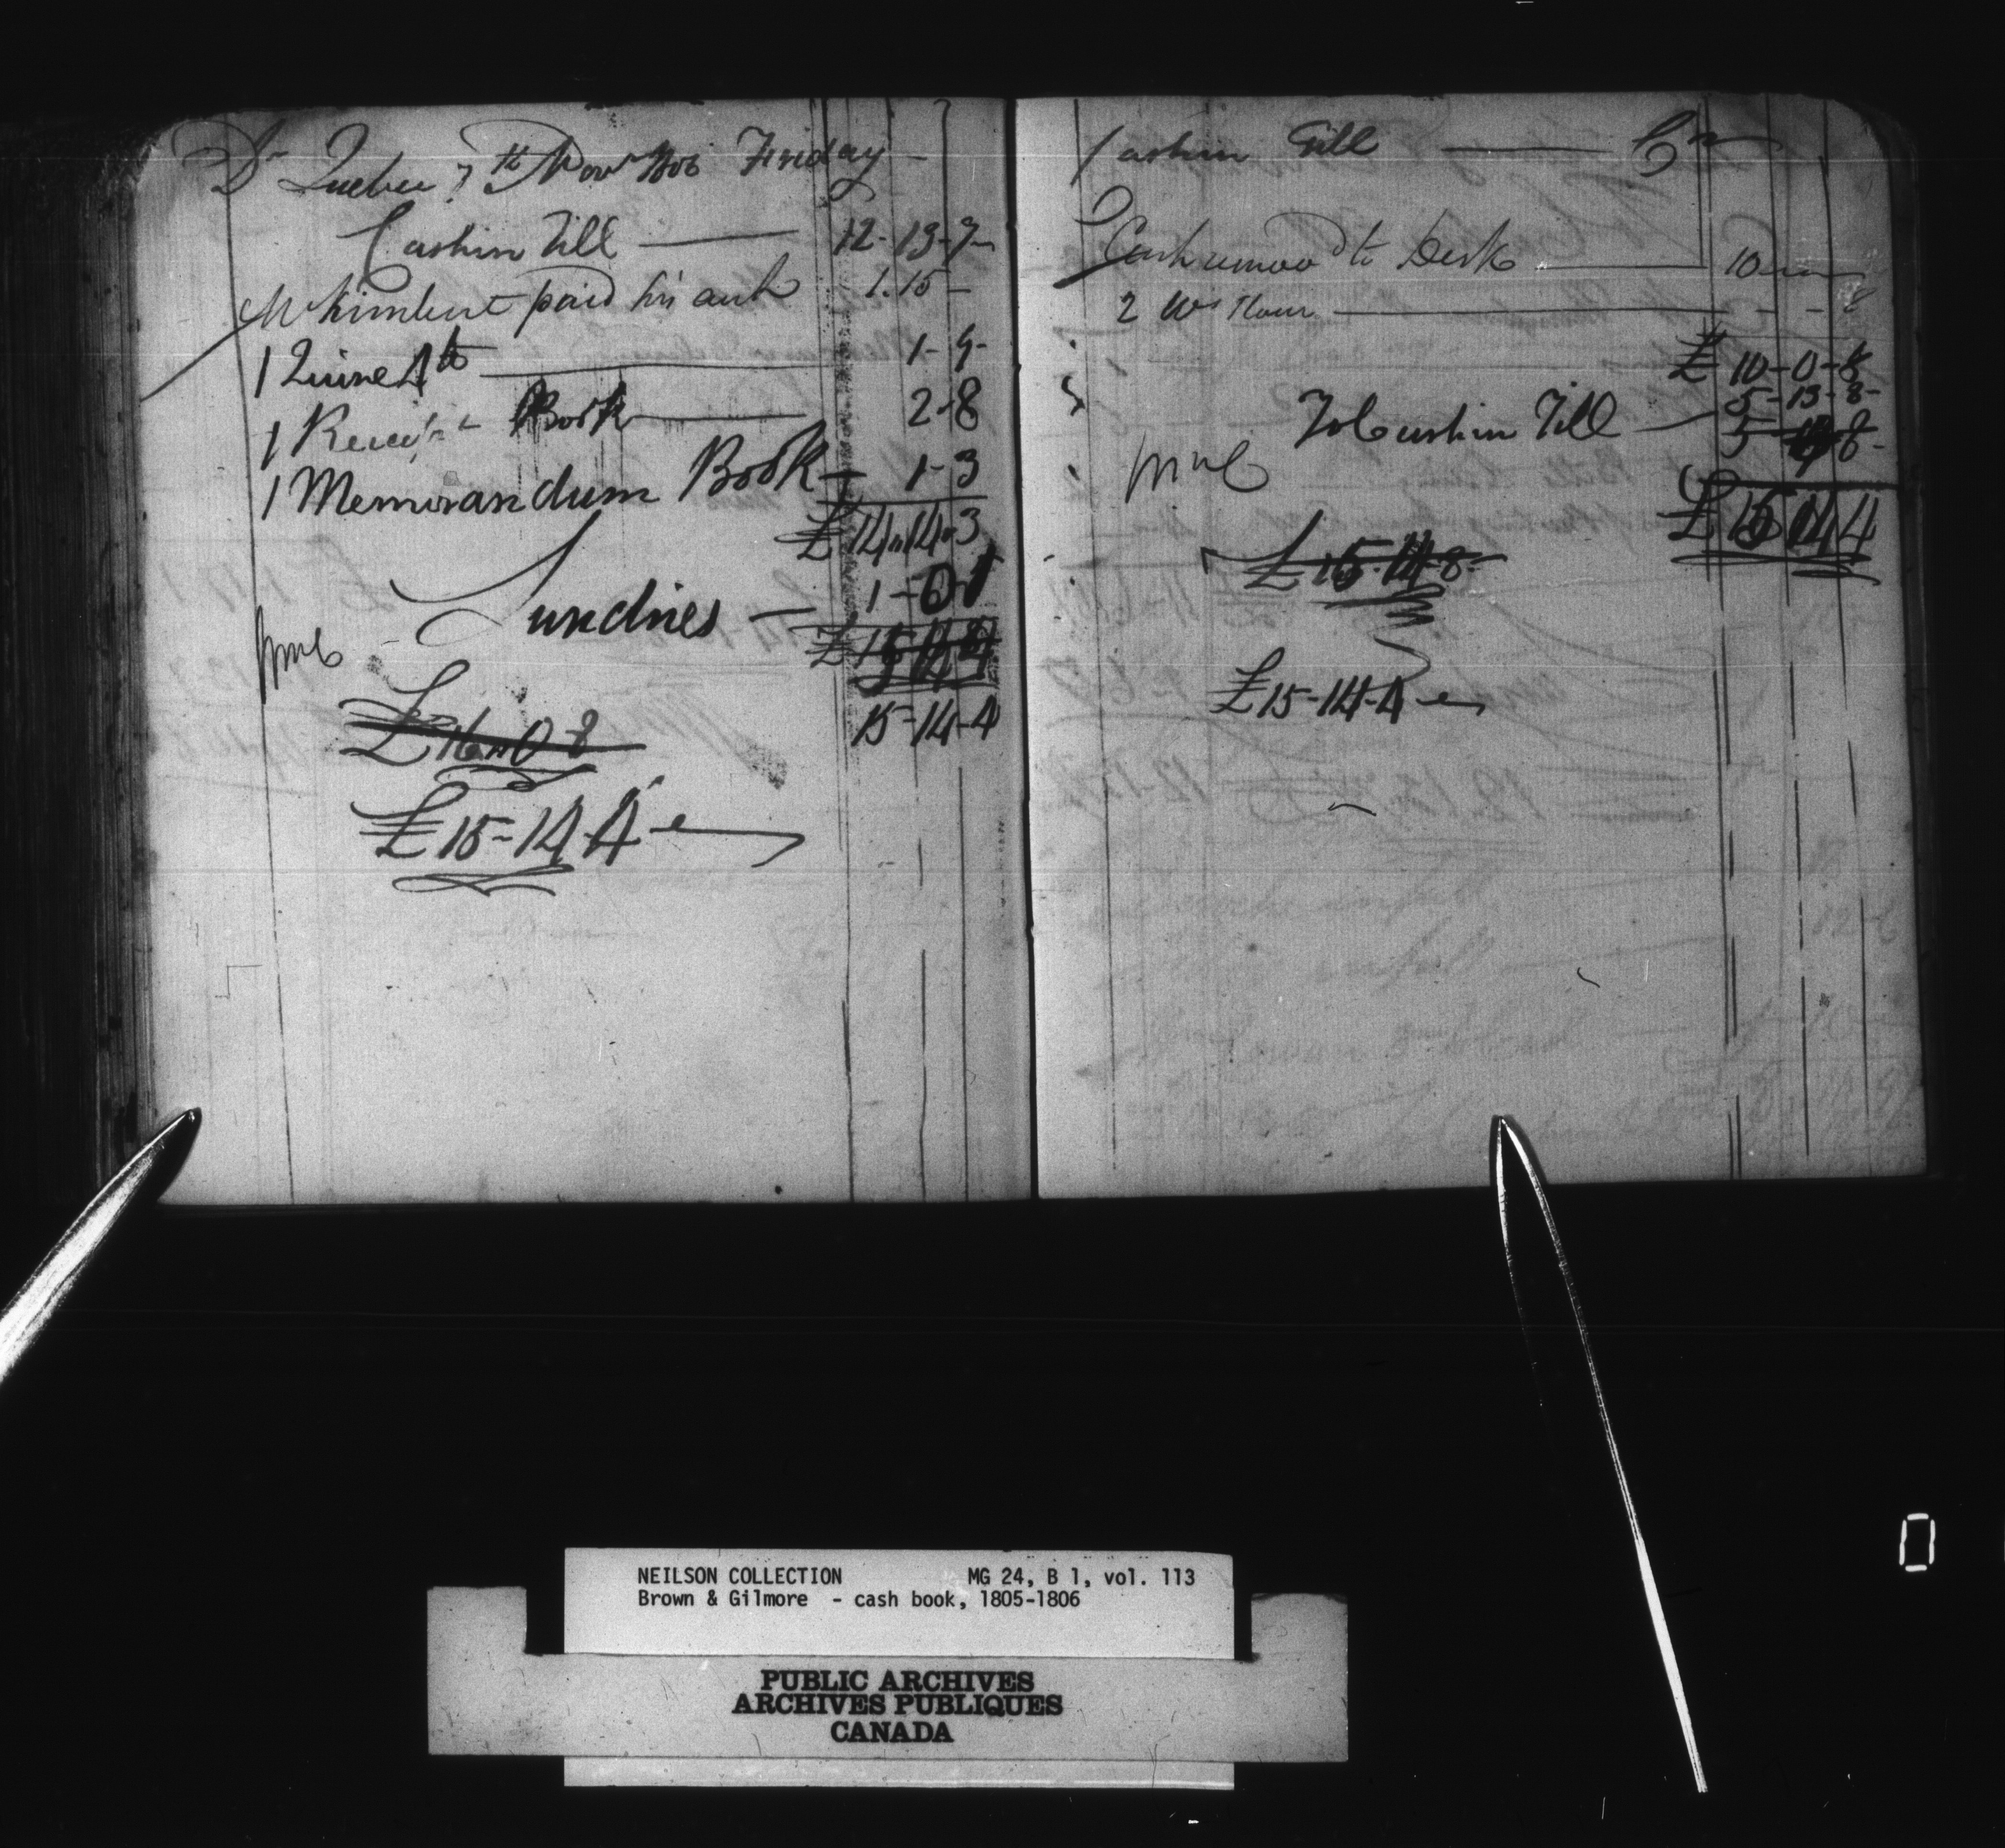 Dr Quebec 7th Novr 1806 Friday
Cash in Till — 12-13-7
Mr Kimbert paid his acct 1.15-
1 Quire 4to — 1-9-
1 Receipt Book — 2-8
1 Memorandum Book — 1-3
£14"14"3
Sundries — 1-0-1
WmC
£16"0-8
15-14-4
£15-14-4
Cash in Till — Cr
Cash remov'd to Desk — 10
2 Flour — 8
£10-0-8
5-13-8-
To Cash in Till — 5 8-
WmC
£15 14 4
£15-14-8-
£15-14-4
NEILSON COLLECTION MG 24, B 1, vol. 113
Brown & Gilmore - cash book, 1805-1806
PUBLIC ARCHIVES
ARCHIVES PUBLIQUES
CANADA